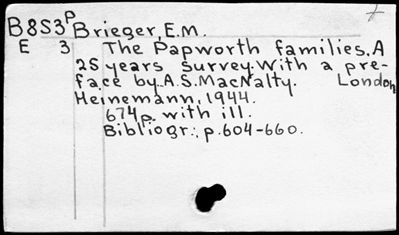 B8S3P Brieger, E.M.
E 3 The Papworth families. A
25 years survey. With a pre-
face by A.S. MacNalty. London
Heinemann, 1944.
674p. with ill.
Bibliogr.: p. 604-660.